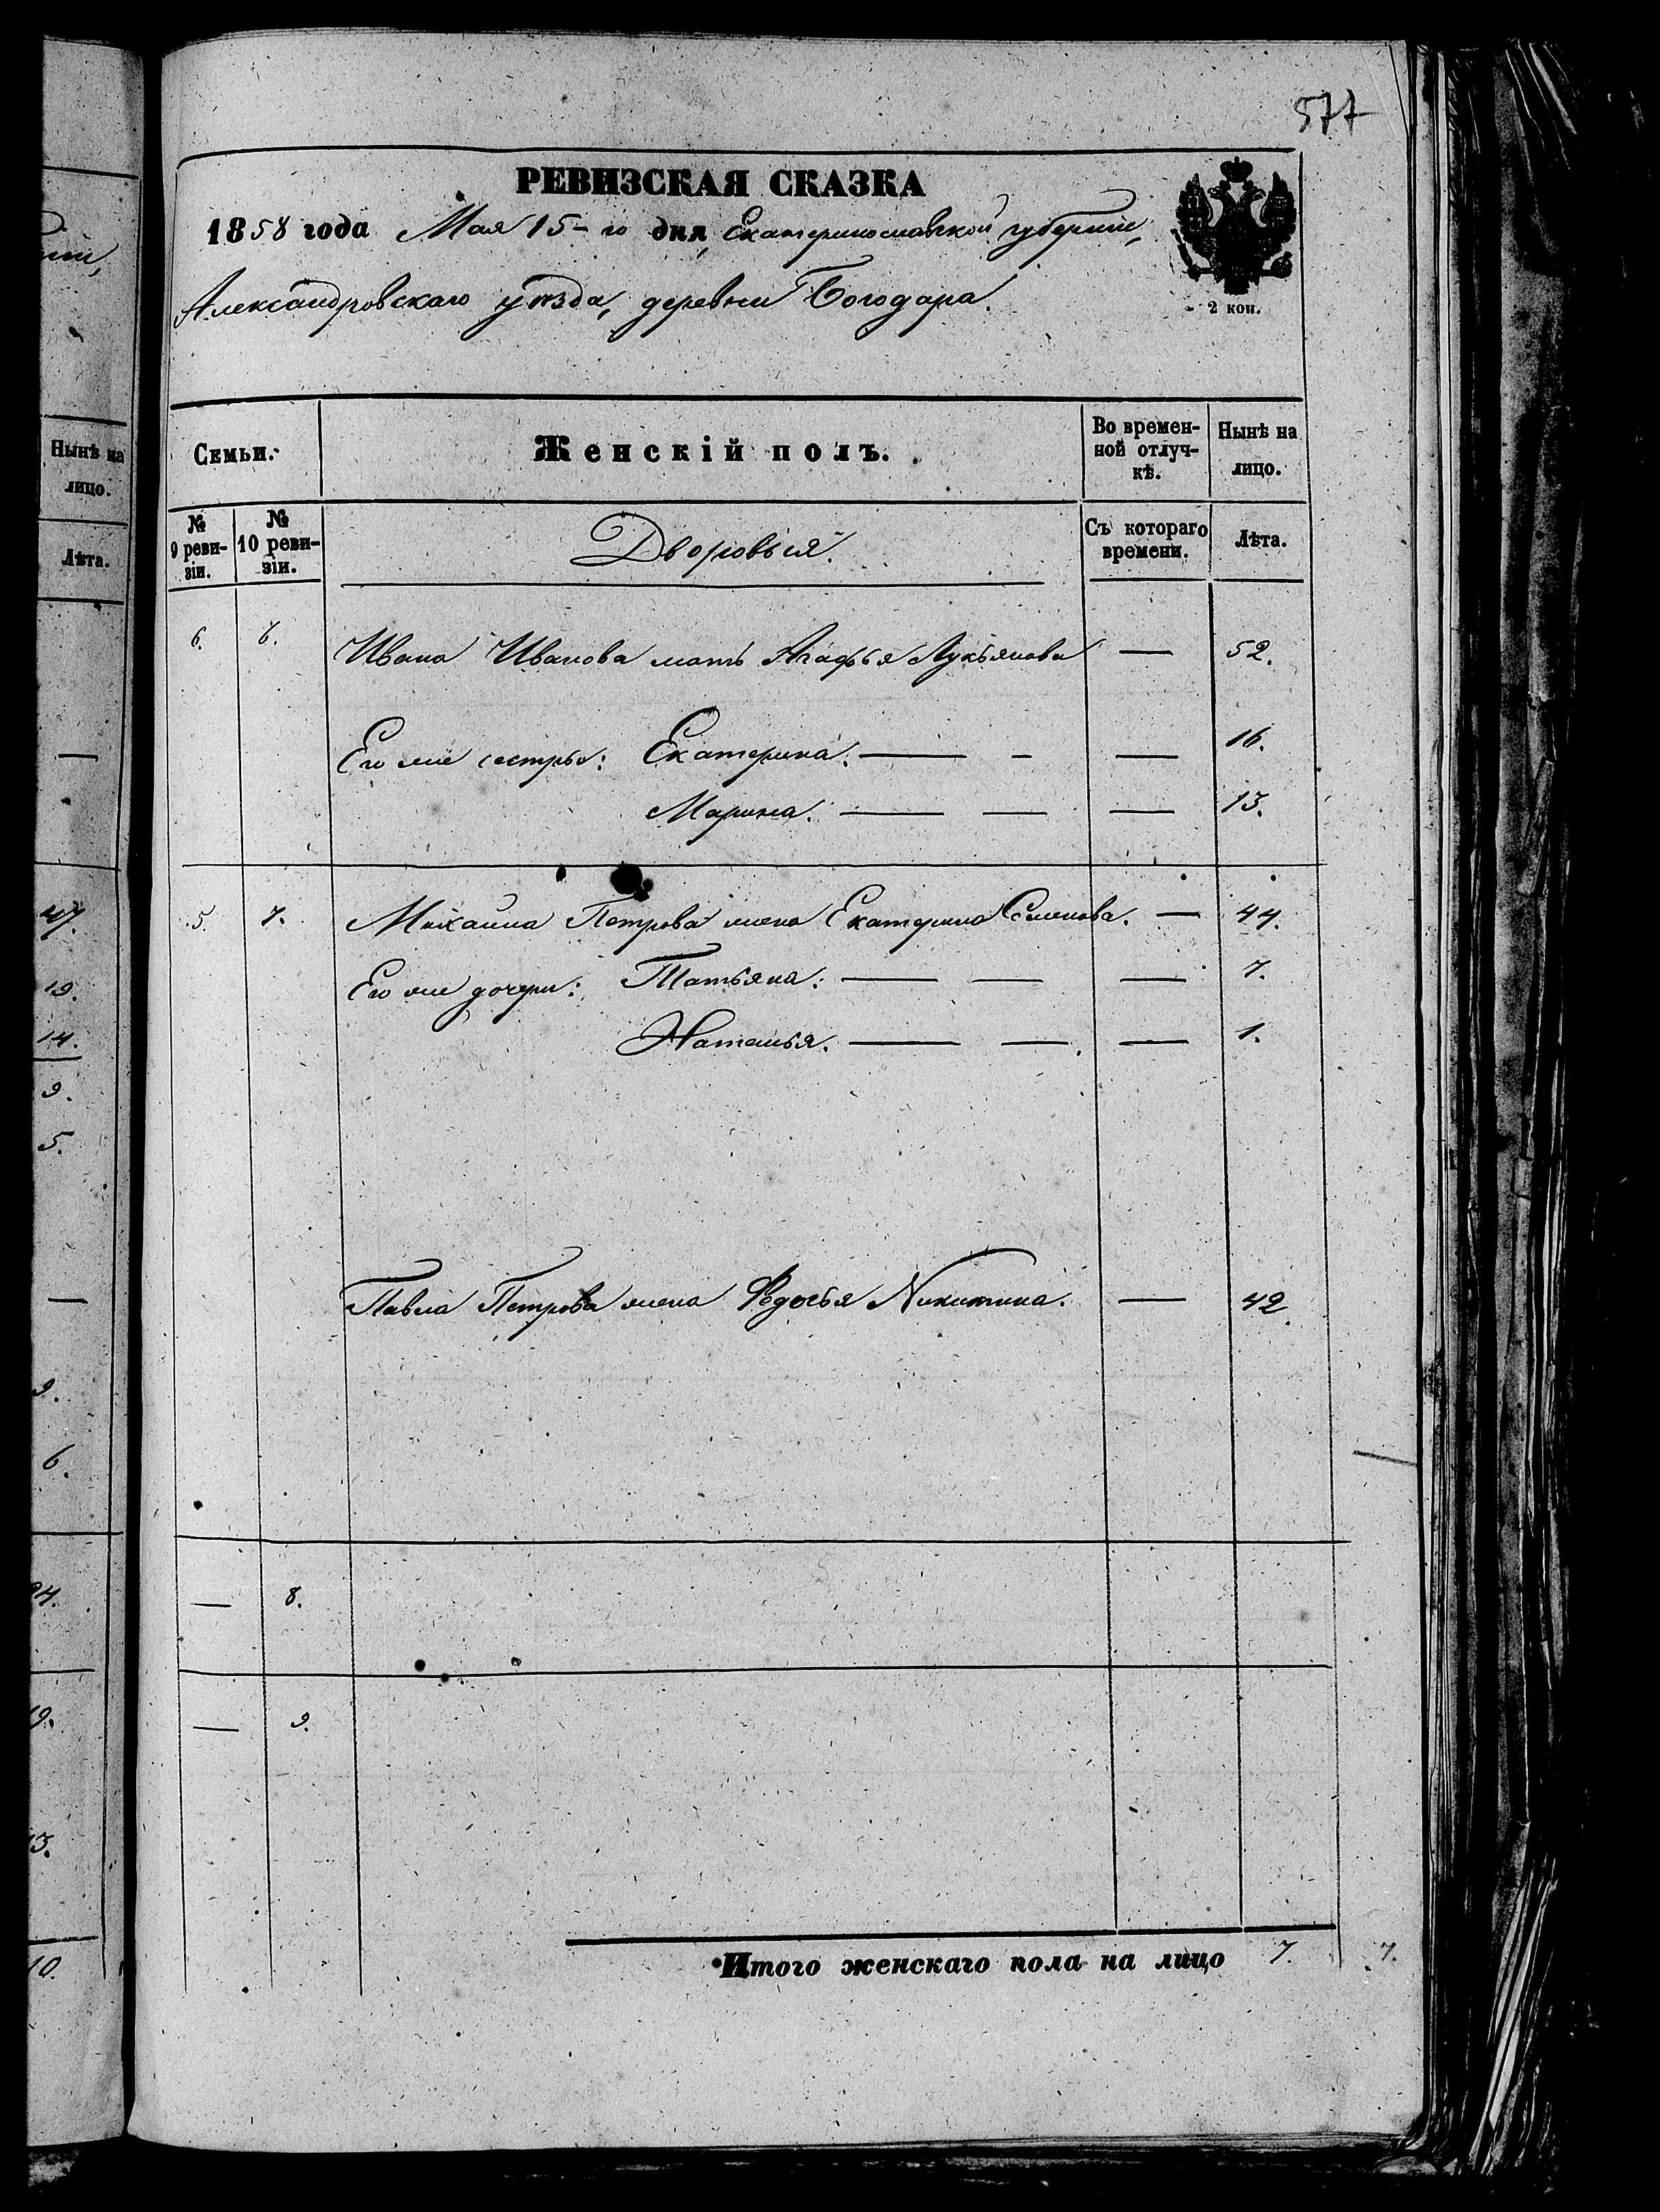 577
РЕВИЗСКАЯ СКАЗКА
1858 года Мая 15-го дня Екатеринославской губерніи,
Александровскаго уѣзда, деревни Богодара.
2 коп.
Семьи. Женскій полъ. Во времен-
ной отлуч-
кѣ. Нынѣ на
лицо.
№
9 реви-
зіи. №
10 реви-
зіи. Дворовыя. Съ котораго
времени. Лѣта.
6. 6. Ивана Иванова мать Агафья Лукьянова — 52.
Его же сестры: Екатерина. — — — 16.
Марина. — — — 13.
5. 7. Михаила Петрова жена Екатерина Семенова. — 44.
Его же дочери: Татьяна. — — — 7.
Наталья. — — — 1.
Павла Петрова жена Федосья Никитина. — 42.
— 8.
— 9.
Итого женскаго пола на лицо 7. 7.
ніи,
Нынѣ на
лицо.
Лѣта.
—
47.
19.
14.
9.
5.
—
9.
6.
10.